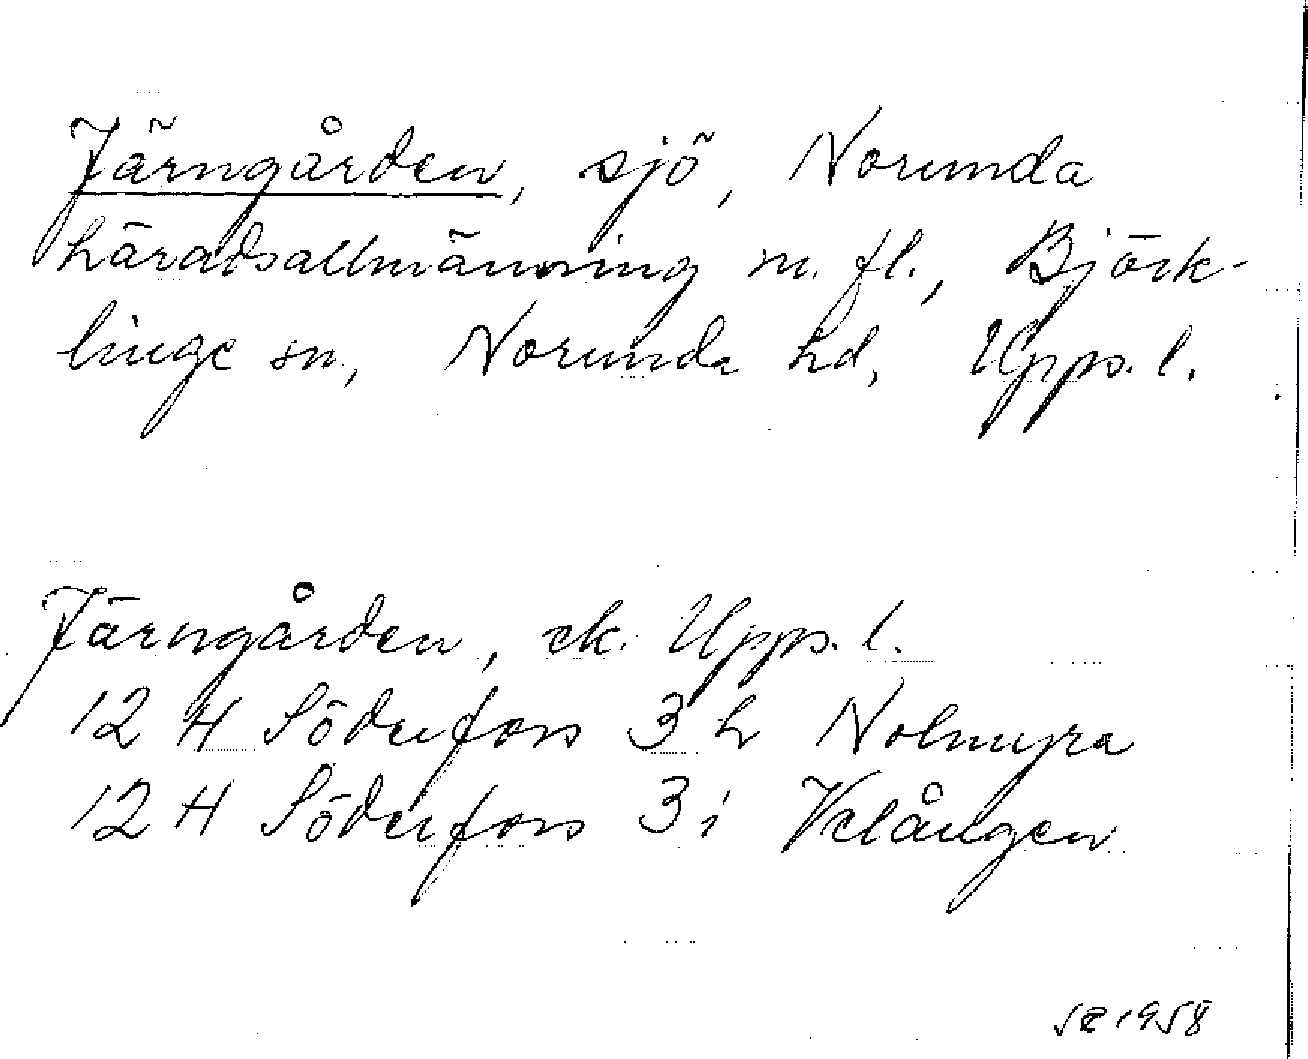 Järngården, sjö, Norunda
häradsallmänning m. fl., Björk-
linge sn, Norunda hd, Upps. l.
Järngården, ek. Upps. l.
12 H Söderfors 3 h Nolmyra
12 H Söderfors 3 i Velången
1958